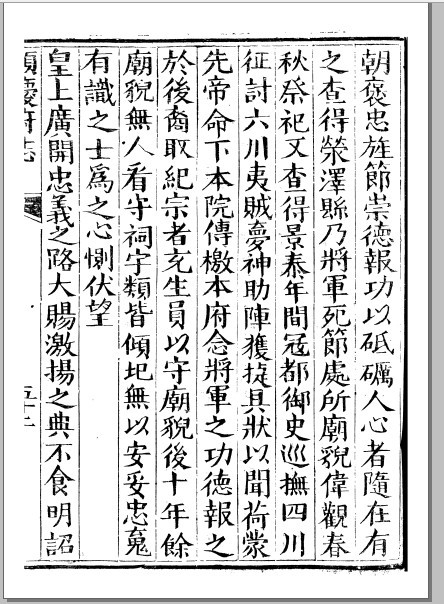 朝褒忠旌節崇德報功以砥礪人心者隨在有
之查得榮澤縣乃將軍死節處所廟貌偉觀春
秋祭祀又查得景泰年間冦都御史巡撫四川
征討六川夷賊夣神助陣獲捷具狀以聞荷蒙
先帝命下本院傳檄本府念將軍之功德報之
於後裔取紀宗者充生員以守廟貌後十年餘
廟貌無人看守祠宇類皆傾圮無以安妥忠䰟
有識之士爲之心惻伏望
皇上廣開忠義之路大賜激揚之典不食明詔
順慶府志
五十二